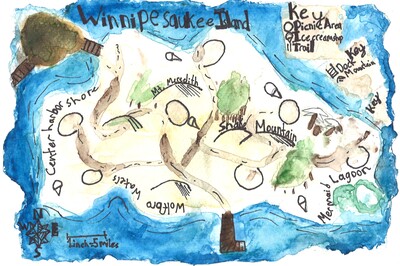 Winnipesaukee Island
Key
Picnic Area
Icecreamshop
Trail
Key
Dock
Mountain
Key
Mt. Meredith
Center harbor Shore
Shak Mountain
Wolfbro Waters
Mermaid Lagoon
N
W E
S
1inch=5miles